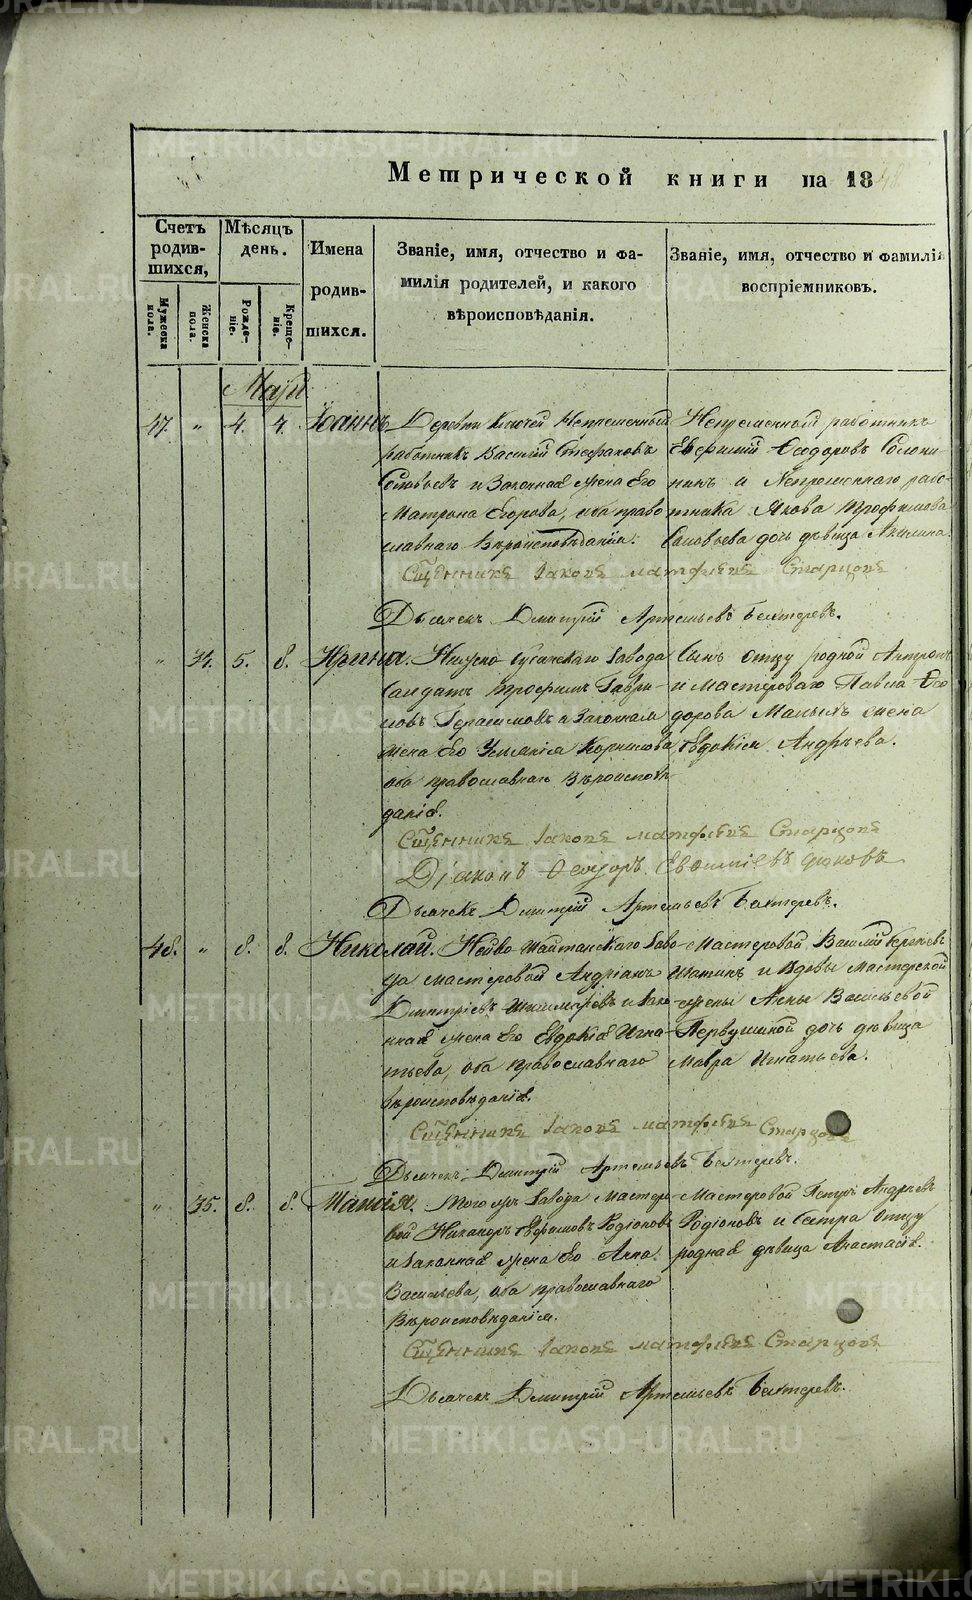 Метрической книги на 18
Счетъ родив-шихся,
Мѣсяцъ день.
Имена родив-шихся.
Званіе, имя, отчество и фа-милія родителей, и какого вѣроисповѣданія.
Званіе, имя, отчество и фамилія воспріемниковъ.
Мужеска пола.
Женска пола.
Рожде-ніе.
Креще-ніе.
Май
47. „ 4. 4. Іоаннъ Деревни Ключей Непременный
работникъ Василий Стефановъ
Соловьевъ и Законная жена Его
Матрона Егорова, оба право
славнаго Вѣроисповѣданія.
Непременный работникъ
Евфимий Ѳеодоровъ Солони-
нинъ и Непременнаго рабо-
тника Якова Трофимова
Соловьева дочь дѣвица Акилина.
Священникъ Іаковъ Матфіевъ Старцовъ
Дьячекъ Димитрій Артемьевъ Бехтеревъ.
„ 34. 5. 8. Ирина. Завода
Салдатъ Трофимъ Гаври-
ловъ Герасимовъ и Законная
жена Его Корнилова
оба православнаго Вѣроисповѣ
данія.
Сынъ отцу родной
и Мастероваго Павла Ѳео
дорова жена
Евдокія Андрѣева.
Священникъ Іаковъ Матфіевъ Старцовъ
Діаконъ Ѳеодоръ Евфиміевъ
Дьячекъ Димитрій Артемьевъ Бехтеревъ.
48. „ 8. 8. Николай. Нейво Шайтанскаго Заво-
да мастеровой Андріанъ
Димитріевъ и Зако
нная жена Его Евдокія Игна-
тьева, оба православнаго
вѣроисповѣданія.
Мастеровой Василій
и Вдовы Мастерской
жены Анны Васильевой
Первушиной дочь дѣвица
Мавра Игнатьева.
Священникъ Іаковъ Матфіевъ Старцовъ
Дьячекъ Димитрій Артемьевъ Бехтеревъ.
„ 35. 8. 8. Таисія. Того жъ Завода Мастеро-
вой Никаноръ Ефимовъ Родіоновъ
и Законная жена Его Анна
Васильева, оба православнаго
Вѣроисповѣданія.
Мастеровой Петръ Андреевъ
Родіоновъ и Сестра отцу
родная дѣвица Анастасія.
Священникъ Іаковъ Матфіевъ Старцовъ
Дьячекъ Димитрій Артемьевъ Бехтеревъ.
METRIKI.GASO-URAL.RU